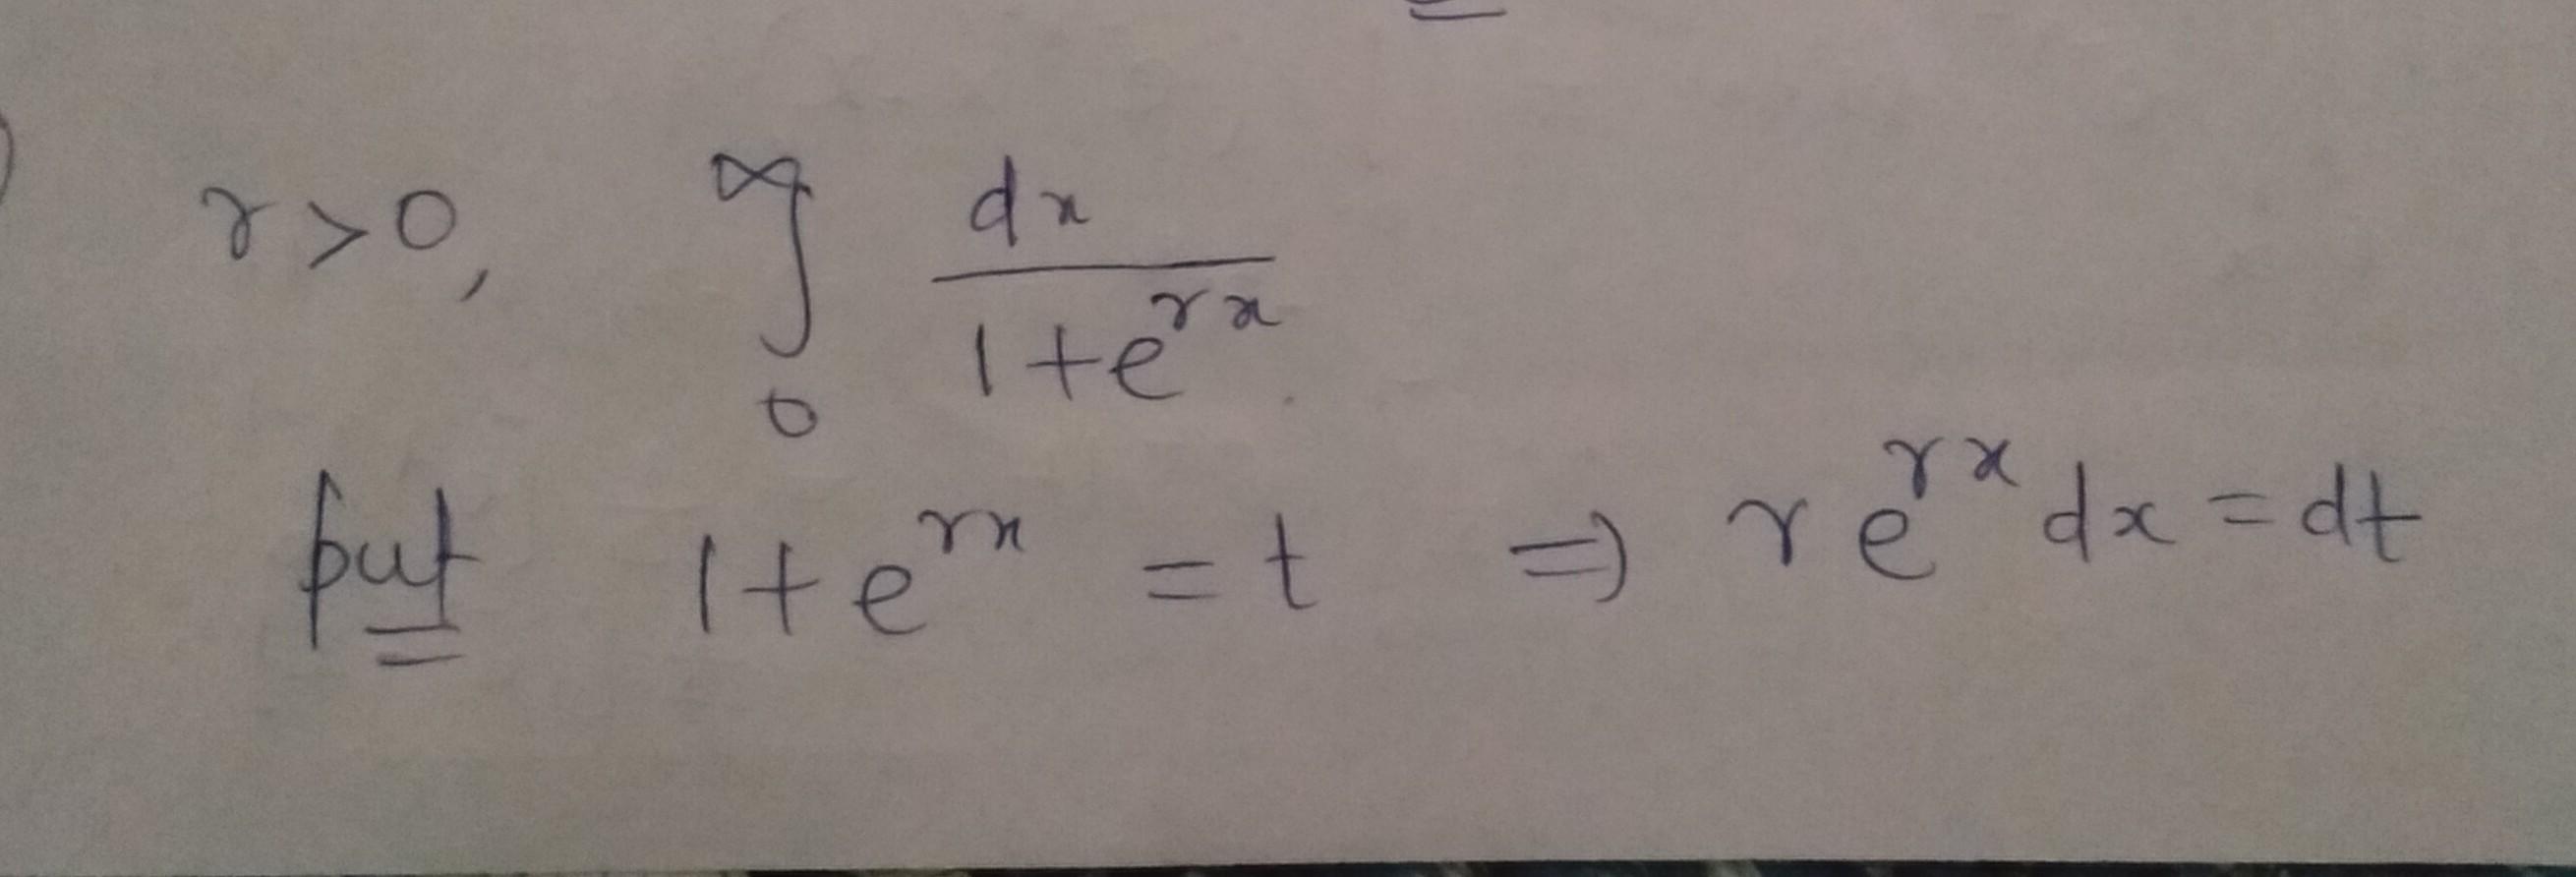 r>0, ∫₀^∞ dx / (1+e^{rx})
put 1+e^{rx} = t ⇒ r e^{rx} dx = dt